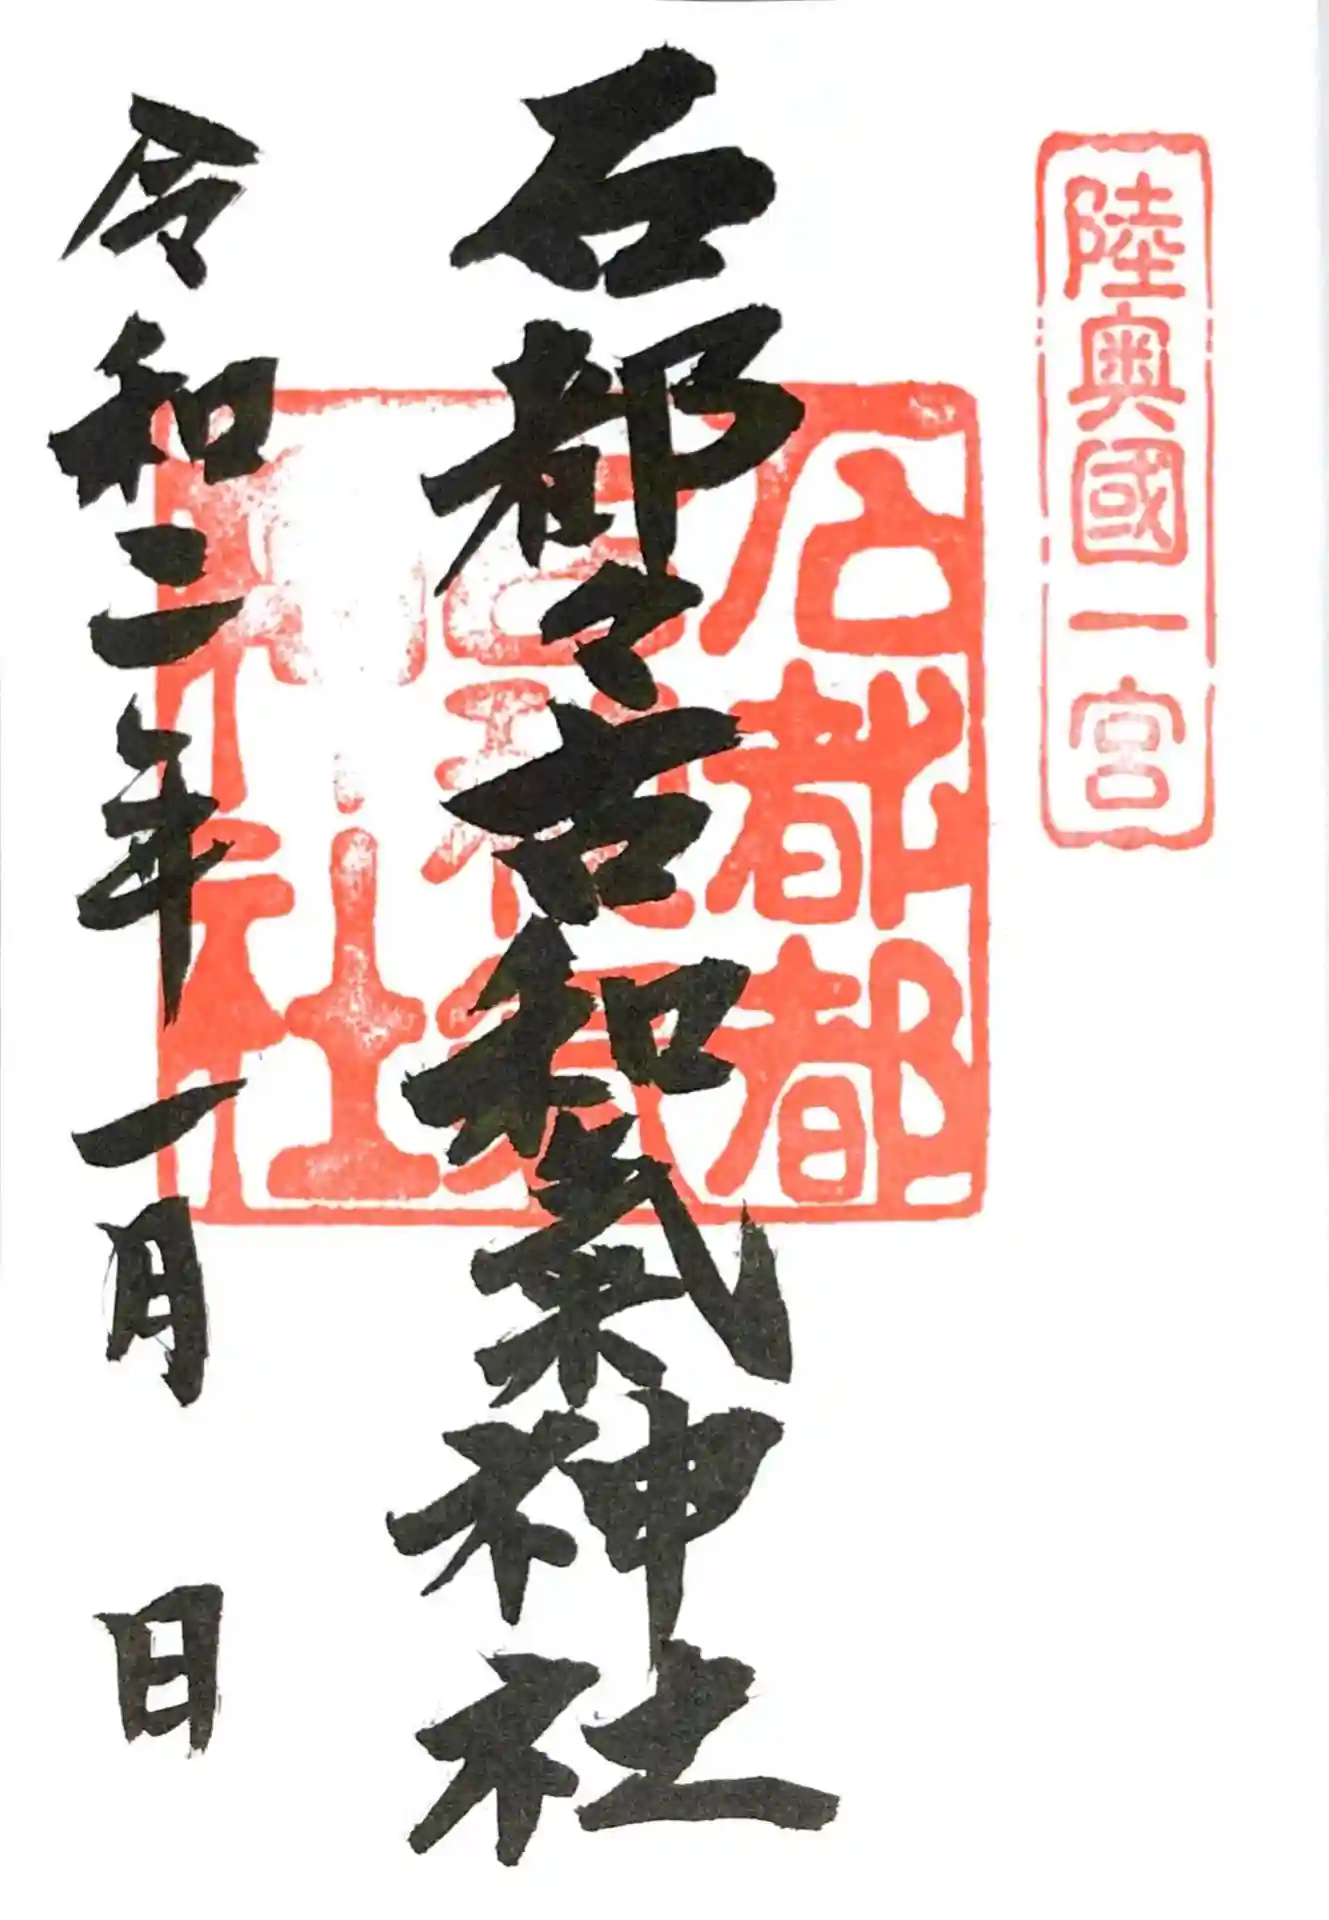 陸奥國一宮
石都々古和氣神社
石都都
古和氣
神社
令和二年一月 日